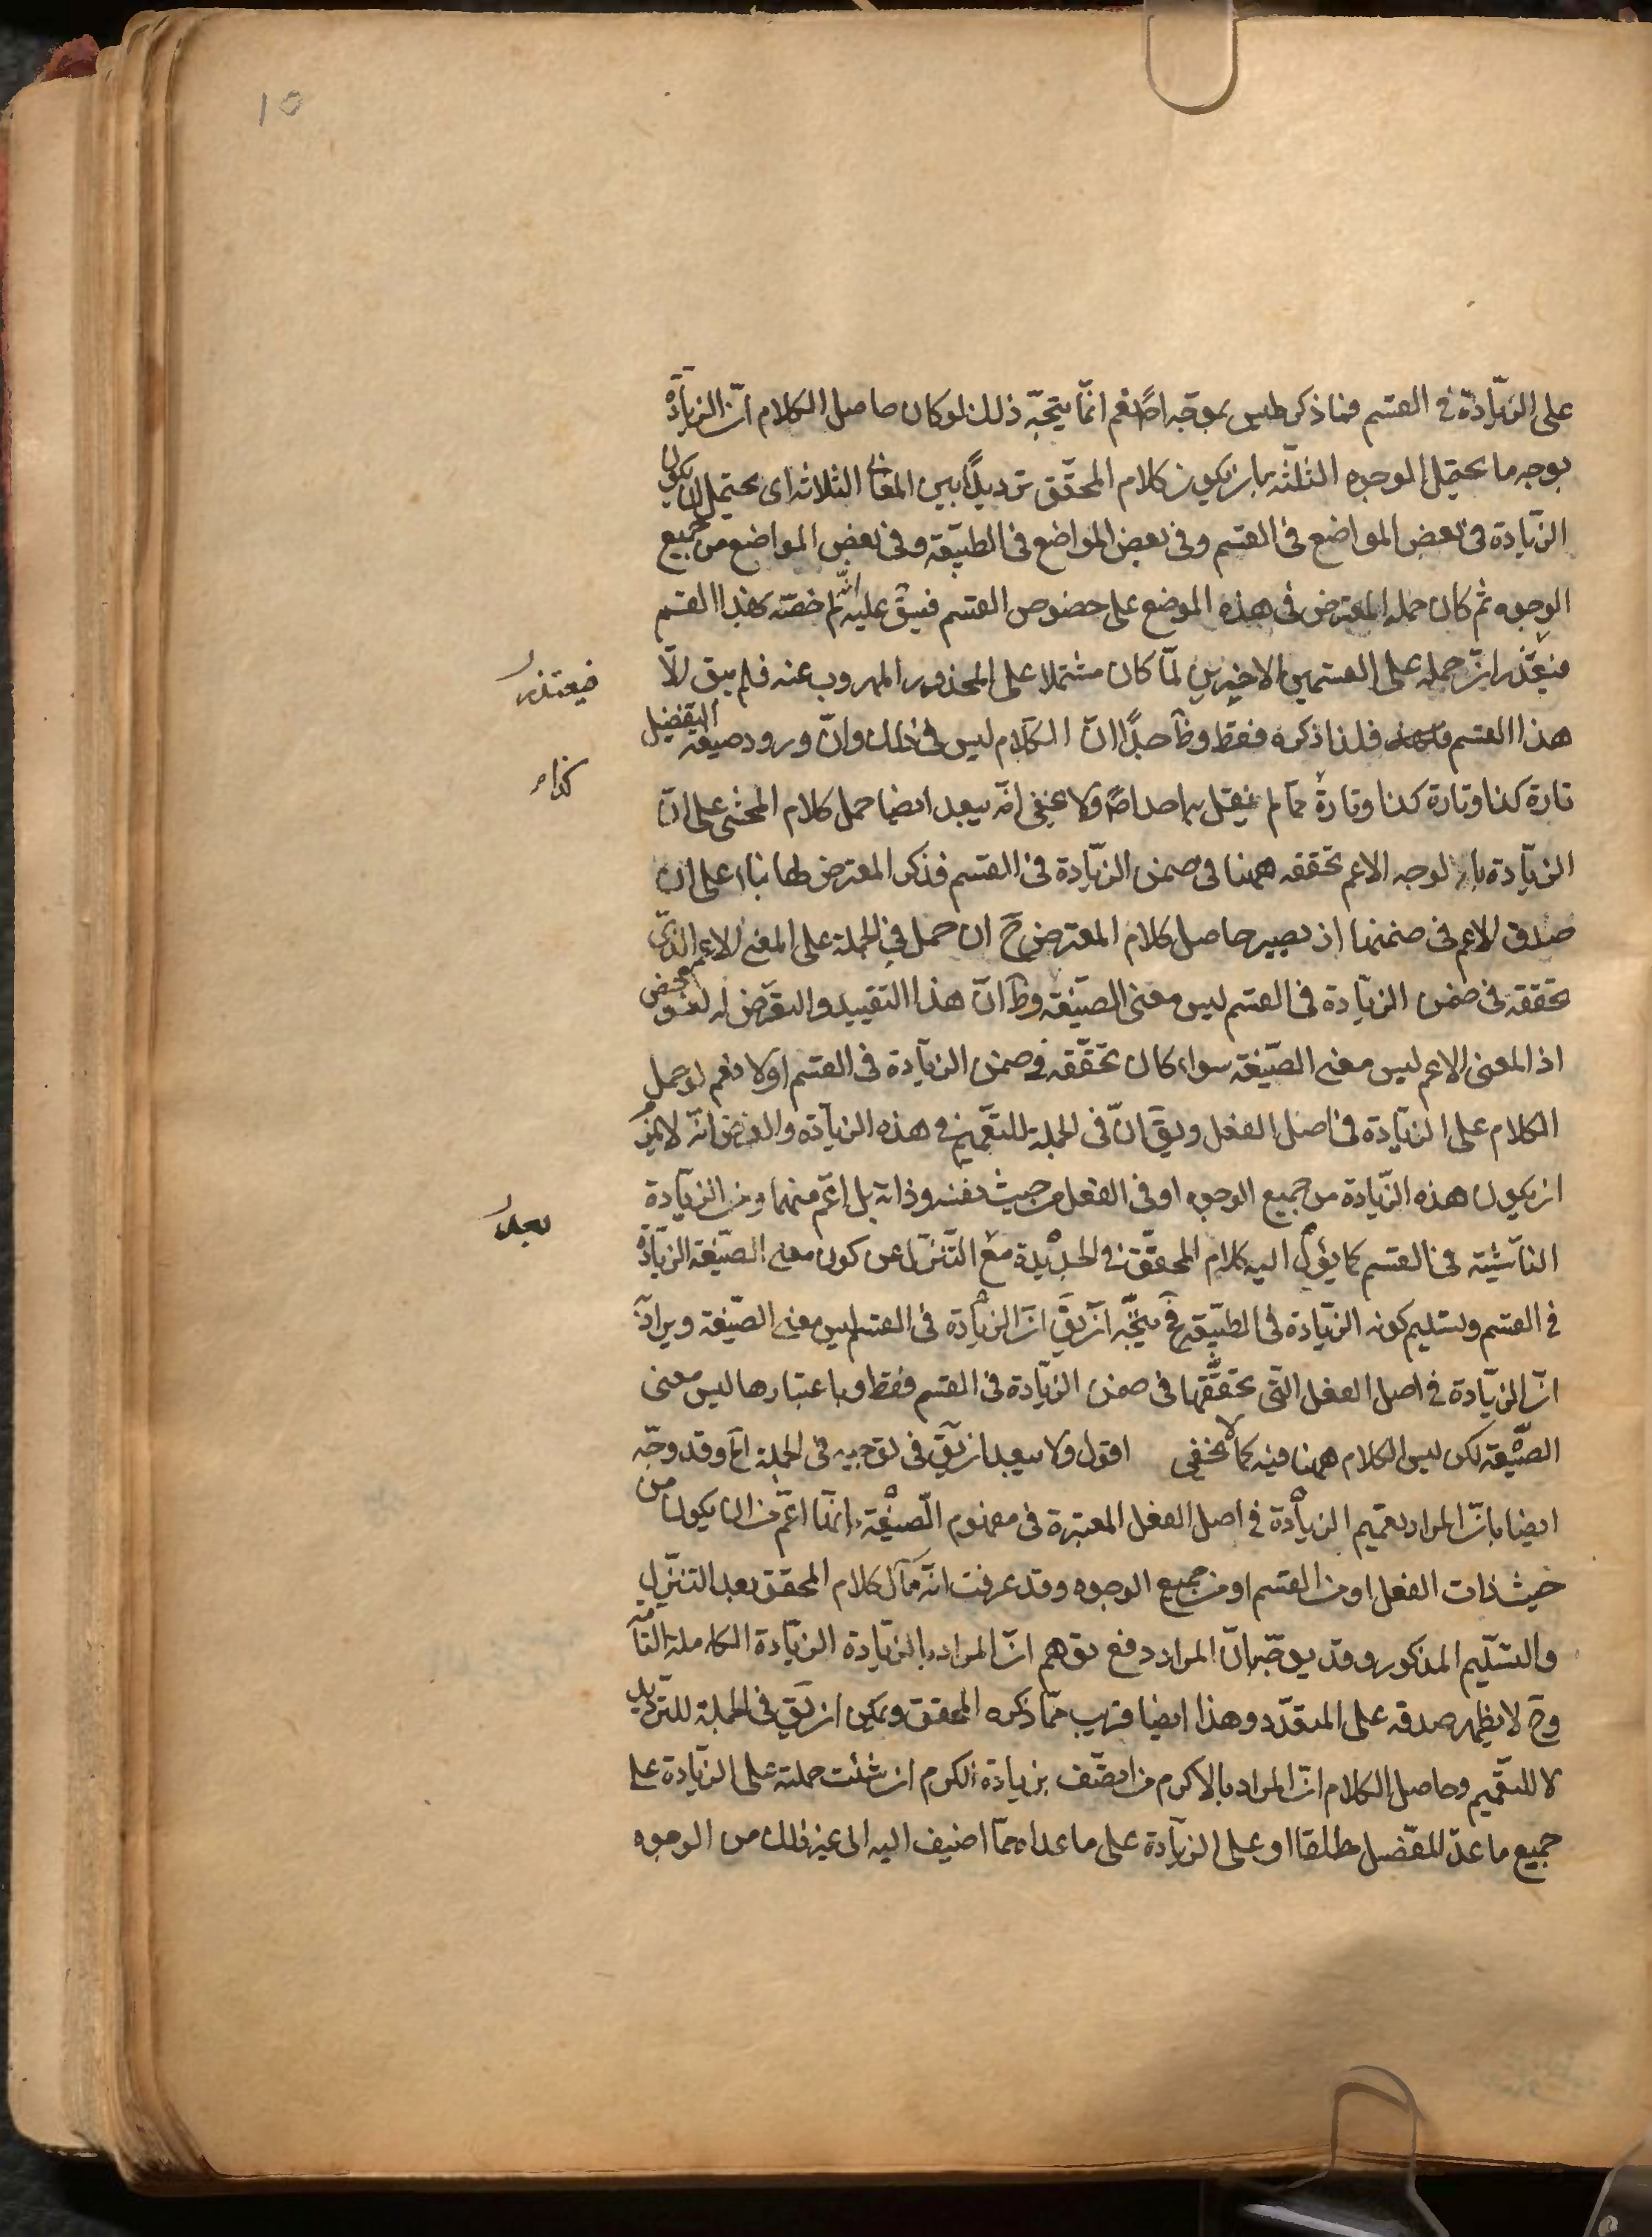 10
على الزيادة في القسم فما ذكر ليس بموجّه اصلًا نعم انّما يتجّه ذلك لو كان حاصل الكلام انّ الزيادة
بوجه ما يحتمل الوجوه الثلثة بان يكون كلام المحقّق ترديدًا بين المعانى الثلاثة اى يحتمل ان يكون
الزّيادة فى بعض المواضع فى القسم وفى بعض المواضع فى الطبيعة وفى بعض المواضع من جميع
الوجوه ثم كان حمله المعترض فى هذه الموضع على خصوص القسم فيق عليه انّه لم خصّته بهذا القسم
فيعتذر انّ حمله على القسمين الاخيرين لمّا كان مشتملا على المحذور المهروب عنه فلم يبق الّا
فيعتذر
هذا القسم فلذا ذكره فقط وظ جدًّا ان الكلام ليس فى ذلك وانّ ورود صيغة التفضيل
تارة كذا وتارة كذا وتارة ممّا لم يقل به احد اصلًا ولا يخفى انّه يبعد ايضا حمل كلام المحشى على انّ
كذا
الزّيادة بالوجه الاعم تحققه ههنا فى ضمن الزّيادة فى القسم فذكر المعترض لها بناء على ان
صدق الاعم فى ضمنها اذ يصير حاصل كلام المعترض ح ان حمل فى الجملة على المعنى الاعم الذى
تحققه فى ضمن الزّيادة فى القسم ليس معنى الصّيغة وظ انّ هذا التقييد والتعرّض له لغو محض
اذ المعنى الاعم ليس معنى الصّيغة سواء كان تحقّقه فى ضمن الزّيادة فى القسم اولا نعم لو حمل
الكلام على الزّيادة فى اصل الفعل ويق انّ فى الجملة للتعميم فى هذه الزيادة والغرض انّه لا يلزم
ان يكون هذه الزّيادة من جميع الوجوه او فى الفعل من حيث نفسه وذاته بل اعّم منهما ومن الزّيادة
الناشئة فى القسم كما يؤل اليه كلام المحقّق فى الجديدة مع التّنزّل عن كون معنى الصّيغة الزيادة
بعد
فى القسم وتسليم كونه الزّيادة فى الطبيعة فح يتجّه ان يق انّ الزيادة فى القسم ليس معنى الصّيغة ويراد
انّ الزّيادة فى اصل الفعل التّى تحقّقها فى ضمن الزّيادة فى القسم فقط وباعتبارها ليس معنى
الصّيغة لكن ليس الكلام ههنا فيه كما لا يخفى اقول ولا يبعد ان يق فى توجيه فى الجملة اخ وقد وجّه
ايضا بانّ المراد تعميم الزيادة فى اصل الفعل المعتبرة فى مفهوم الصّيغة انّها اعّم من ان يكون من
حيث ذات الفعل او من القسم او من جميع الوجوه وقد عرفت انّه مآل كلام المحقق بعد التنزّل
والتسّليم المذكور وقد يوجّه بانّ المراد دفع توهم انّ المراد بالزّيادة الزّيادة الكاملة التامّة
وح لا يظهر صدقه على المتعدّد وهذا ايضا قريب ممّا ذكره المحقق ويمكن ان يق فى الجملة للترديد
لا للتعّميم وحاصل الكلام انّ المراد بالاكرم من اتصّف بزيادة الكرم ان شئت حملته على الزّيادة على
جميع ما عدّ المفضّل مطلقا او على الزيادة على ما عداه ممّا اضيف اليه الى غير ذلك من الوجوه